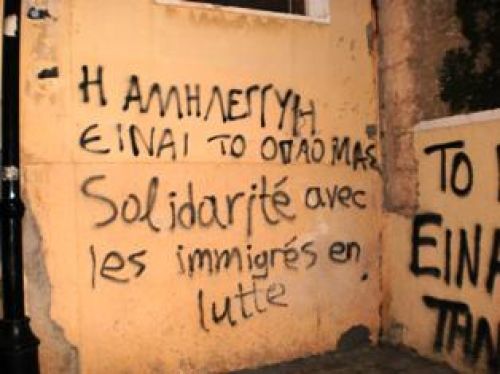 Η ΑΛΛΗΛΕΓΓΥΗ
ΕΙΝΑΙ ΤΟ ΟΠΛΟ ΜΑΣ
Solidarité avec
les immigrés en
lutte
ΤΟ
ΕΙΝΑ
ΤΑΝ